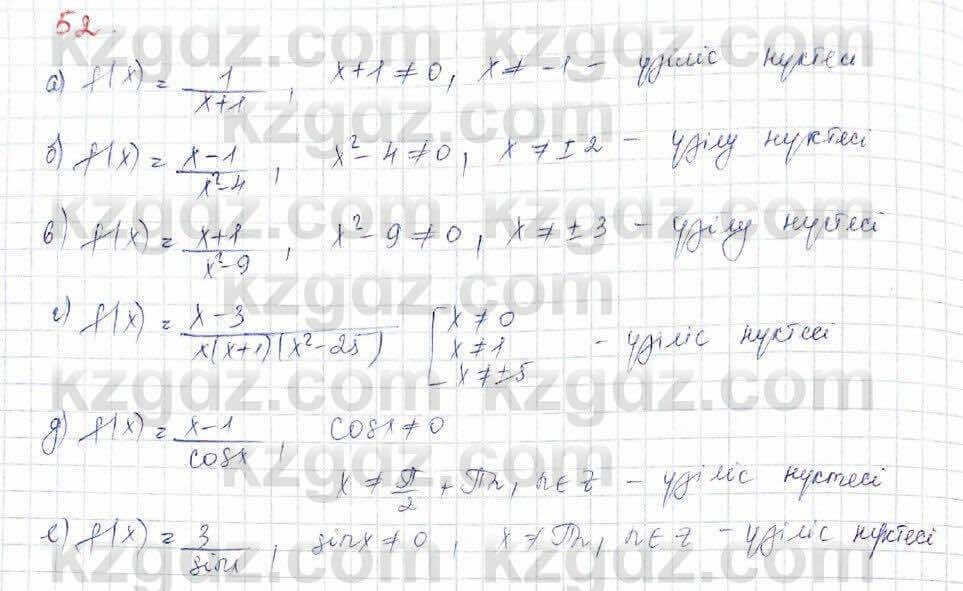 52.
а) f(x) = 1/(x+1), x+1≠0, x≠-1 - үзіліс нүктесі
б) f(x) = (x-1)/(x²-4), x²-4≠0, x≠±2 - үзілу нүктесі
в) f(x) = (x+1)/(x²-9), x²-9≠0, x≠±3 - үзілу нүктесі
г) f(x) = (x-3)/(x(x+1)(x²-25)) [x≠0 - үзіліс нүктесі
x≠1
x≠±5
д) f(x) = (x-1)/cosx, cosx≠0
x≠π/2+πn, n∈z - үзіліс нүктесі
е) f(x) = 3/sinx, sinx≠0, x≠πn, n∈z - үзіліс нүктесі
kzgdz.com
kzgdz.com
kzgdz.com
kzgdz.com
kzgdz.com
kzgdz.com
kzgdz.com